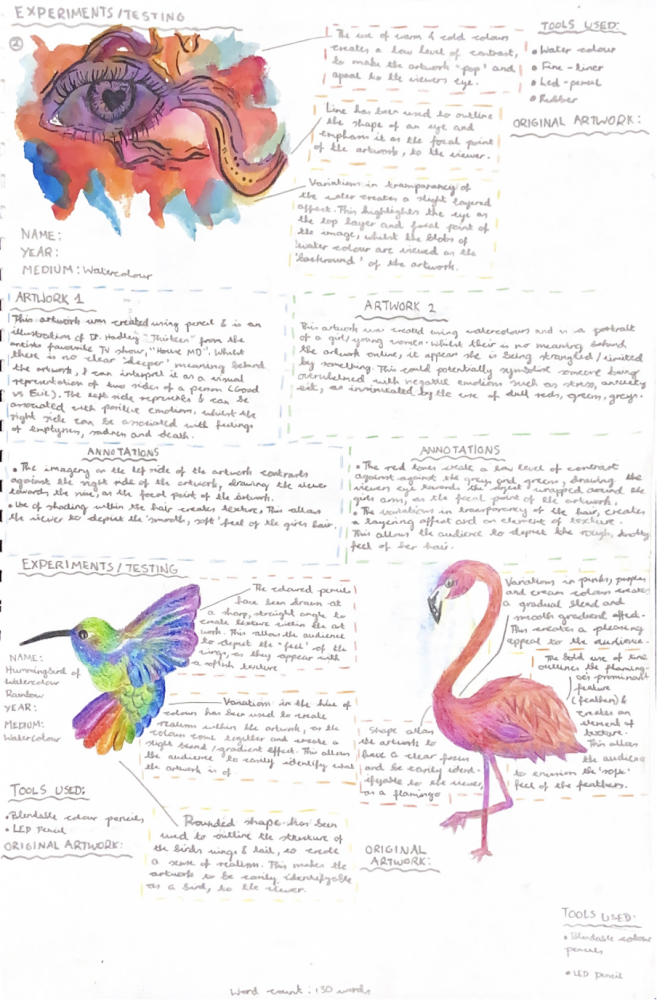 EXPERIMENTS/TESTING
The use of warm & cold colours
creates a low level of contrast,
to make the artwork "pop" and
apeal to the viewers eye.
Line has been used to outline
the shape of an eye and
emphasis it as the focal point
of the artwork, to the viewer.
Variations in transparancy of
the water creates a slight layered
affect. This highlights the eye as
the top layer and focal point of
the image, whilst the blobs of
water colour are viewed as the
'background' of the artwork.
TOOLS USED:
• Water colour
• Fine-liner
• Led-pencil
• Rubber
ORIGINAL ARTWORK:
NAME:
YEAR:
MEDIUM: Watercolour
ARTWORK 1
This artwork was created using pencil & is an
illustration of Dr. Hadley "Thirteen" from the
artists favourite TV show, "House MD". Whilst
there is no clear 'deeper' meaning behind
the artwork, I can interpret it as a visual
representation of two sides of a person (Good
vs Evil). The left side represents & can be
associated with positive emotions, whilst the
right side can be associated with feelings
of emptyness, sadness and death.
ARTWORK 2
This artwork was created using watercolours and is a portrait
of a girl/young women. Whilst their is no meaning behind
the artwork online, it appears she is being strangled/limited
by something. This could potentially symbolise someone being
overwhelmed with negative emotions such as stress, anxiety
etc, as by the use of dull reds, greens, greys.
ANNOTATIONS
• The imagery on the left side of the artwork contrasts
against the right side of the artwork, drawing the viewer
towards the nose, as the focal point of the artwork.
• Use of shading within the hair creates texture. This allows
the viewer to depict the 'smooth, soft' feel of the girls hair.
ANNOTATIONS
• The red tones create a low level of contrast
against against the greys and greens, drawing the
viewers eye towards the 'object' wrapped around the
girls arms, as the focal point of the artwork.
• The variations in transparency of the hair, creates
a layering affect and an element of texture.
This allows the audience to depict the rough, knotty
feel of her hair.
EXPERIMENTS/TESTING
The coloured pencils
have been drawn at
a sharp, straight angle to
create texture within the art
work. This allows the audience
to depict the 'feel' of the
wings, as they appear with
a softish texture
NAME:
Hummingbird of
Watercolour
Rainbow
YEAR:
MEDIUM:
Watercolour
Variation in the hue of
colour has been used to create
realism within the artwork, as the
colours come together and create a
slight blend/gradient effect. This allows
the audience to easily identify what
the artwork is of.
TOOLS USED:
• Blendable colour pencils
• LED Pencil
ORIGINAL ARTWORK:
Rounded shape has been
used to outline the structure of
the birds wings & tail, to create
a sense of realism. This makes the
artwork to be easily identifyable
as a bird, to the viewer.
Variations in pinks, purples
and cream colours creates
a gradual blend and
smooth gradient effect.
This creates a pleasing
appeal to the audience.
The bold use of line
outlines the flaming-
oes prominant
feature
(feathers) &
creates an
element of
texture.
This allows
the audience
to envision the 'rope'
feel of the feathers.
Shape allows
the artwork to
have a clear focus
and be easily ident-
ifyable to the viewer,
as a flamingo
ORIGINAL
ARTWORK:
TOOLS USED:
• Blendable colour
pencils
• LED pencil
Word count: 130 words